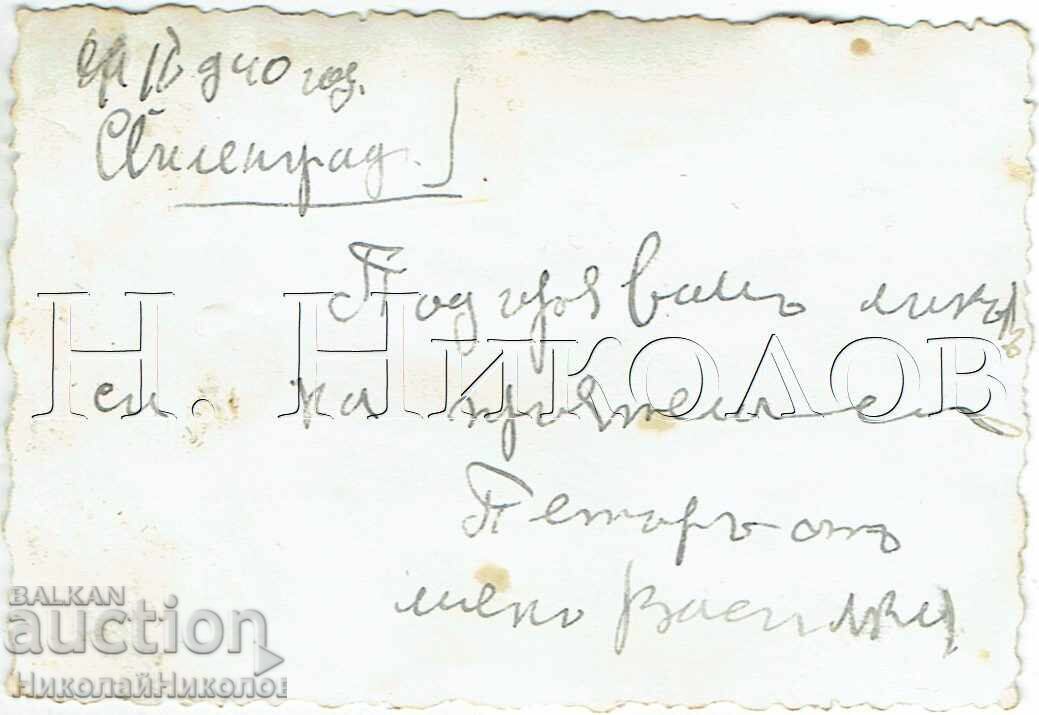 940 год.
Свиленград.
Подарявамъ ликъ
си на приятеля си
Петоръ отъ
мене Василки
Н. Николов
BALKAN
auction
НиколайНиколов